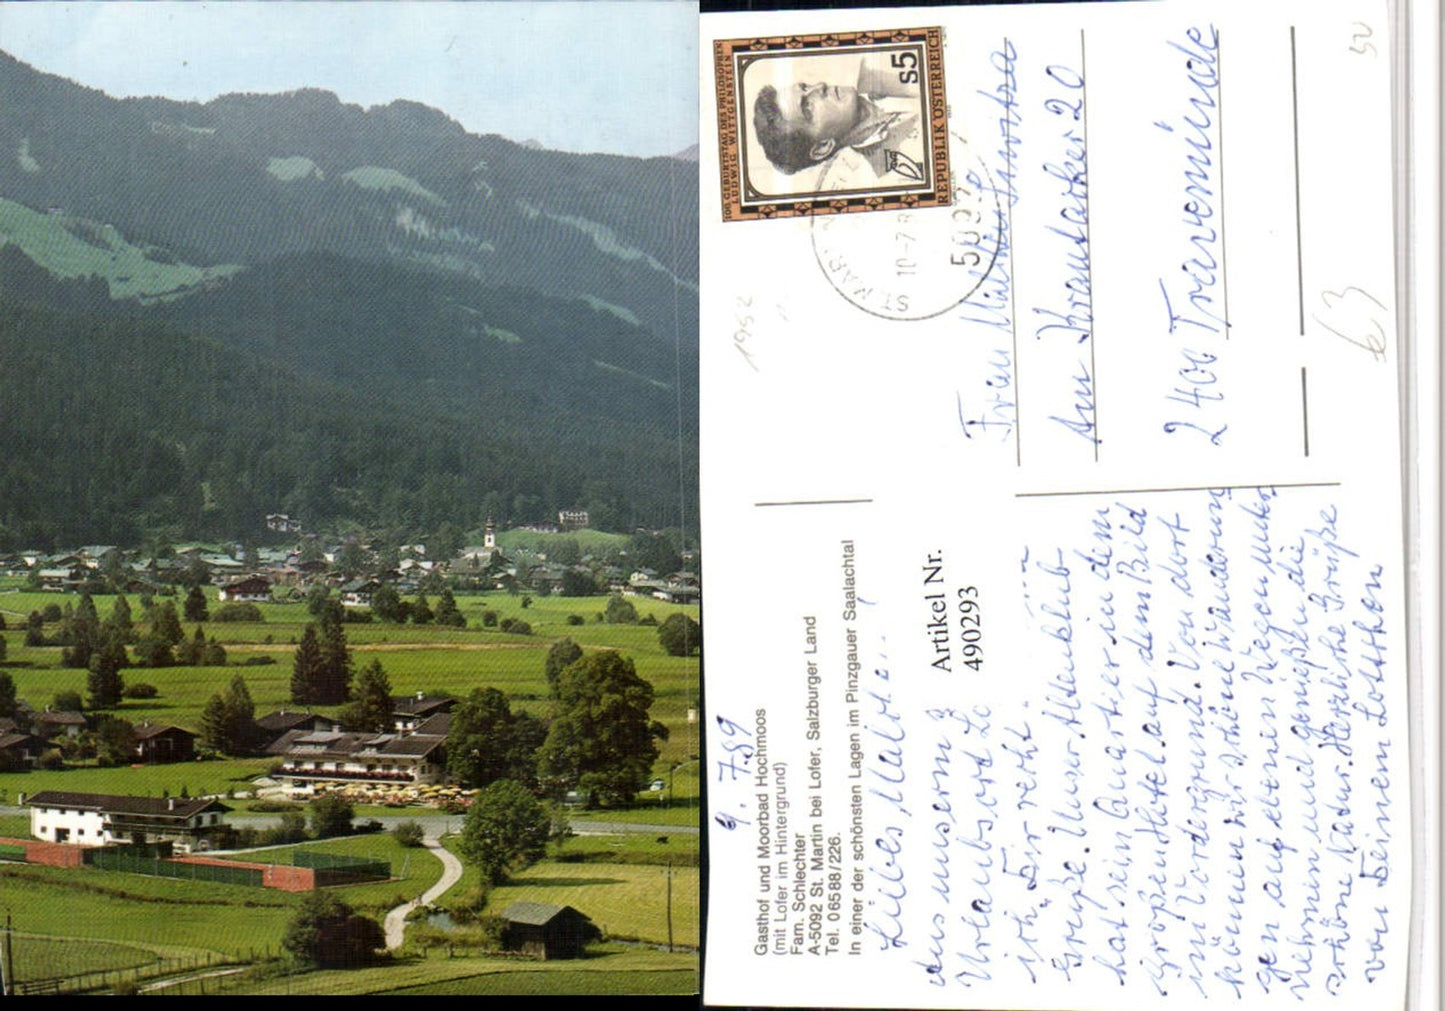 100. GEBURTSTAG DES PHILOSOPHEN
LUDWIG WITTGENSTEIN
S5
REPUBLIK ÖSTERREICH
ST. MARTIN
10.-7.8
5092
1952
50
63
Frau
Am Krautacker 20
2400 Travemünde
Gasthof und Moorbad Hochmoos
(mit Lofer im Hintergrund)
Fam. Schlechter
A-5092 St. Martin bei Lofer, Salzburger Land
Tel. 06588/226.
In einer der schönsten Lagen im Pinzgauer Saalachtal
Artikel Nr.
490293
9. 7.89
Liebes
Aus unserem
Urlaubsort Lo
ich Dir recht
Grüße. Unser Altenklub
hat sein Quartier in dem
großen Hotel auf dem Bild
im Vordergrund. Von dort
können wir schöne Wanderun
gen auf ebenen Wegen unter
nehmen und genießen die
schöne Natur. Herzliche Grüße
von Deinem Lottchen